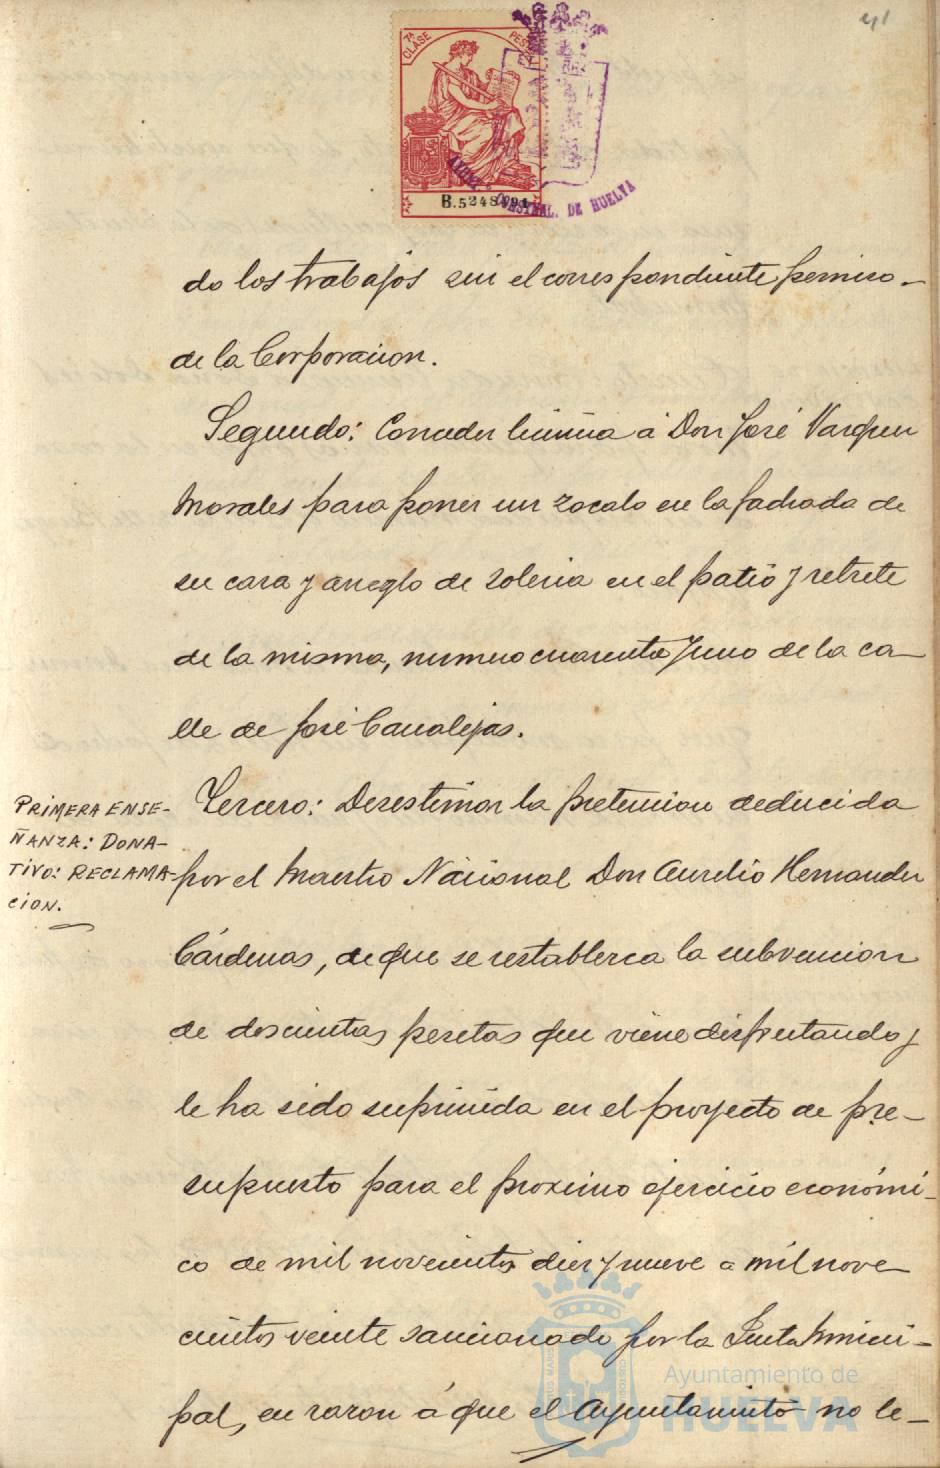 41
7ª CLASE
PESE
B.5248,191
AYUNT. CONSTNAL. DE HUELVA
do los trabajos sin el correspondiente permiso-
de la Corporacion.
Segundo: Conceder licencia á Don José Vazquez
Morales para poner un zocalo en la fachada de
su casa y arreglo de soleria en el patio y retrete
de la misma, numero cuarenta y uno de la ca-
lle de José Canalejas.
PRIMERA ENSE-
ÑANZA: DONA-
TIVO: RECLAMA-
CION.
Tercero: Desestimar la pretension deducida
por el Maestro Nacional Don Aurelio Hernandez
Cárdenas, de que se restablezca la subvencion
de doscientas pesetas que viene disfrutando y
le ha sido suprimida en el proyecto de pre-
supuesto para el proximo ejercicio económi-
co de mil novecientos diez y nueve a mil nove
cientos veinte sancionado por la Junta Munici-
pal, en razon á que el Ayuntamiento no le-
Ayuntamiento de
HUELVA